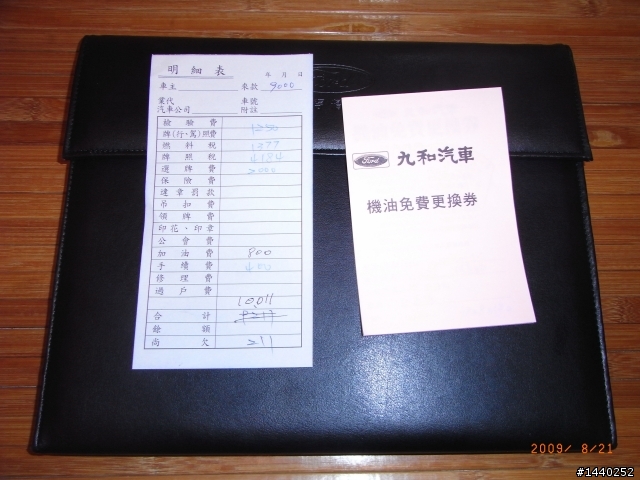 明細表
年 月 日
車主 來款 9000
業代 車號
汽車公司 附註
檢驗費 1250
牌(行、駕)照費
燃料稅 1377
牌照稅 4184
選牌費 2000
保險費
違章罰款
吊扣費
領牌費
印花、印章
公會費
加油費 800
手續費 400
修理費
過戶費
10,011
合計 9211
餘額
尚欠 211
Ford 九和汽車
機油免費更換券
2009/ 8/21
#1440252